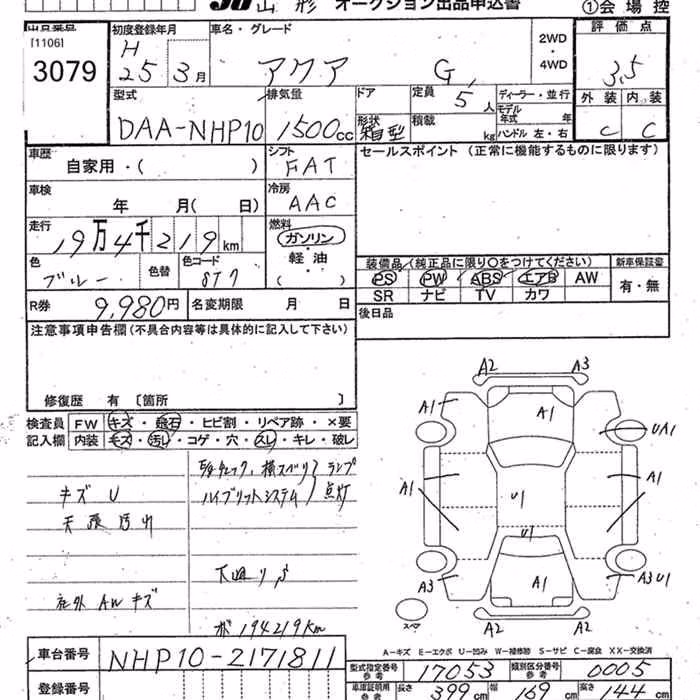 JU 山形 オークション出品申込書 ①会場控
出品番号 [1106] 3079
初度登録年月 H 25 3月
車名・グレード アクア G
2WD・4WD
評価点 3.5
外装 C 内装 C
型式 DAA-NHP10
排気量 1500cc
ドア 形状 箱型
定員 5人
積載 kg
ディーラー・並行
モデル年式 年
ハンドル 左・右
車歴 自家用・( )
シフト FAT
セールスポイント (正常に機能するものに限ります)
車検 年 月( 日)
冷房 AAC
走行 19万4千219km
燃料 ガソリン・軽油・( )
色 ブルー 色替 色コード 8T7
装備品(純正品に限り○をつけてください) 新車保証書
PS PW ABS エアB AW 有・無
SR ナビ TV カワ
R券 9,980円 名変期限 月 日
後日品
注意事項申告欄(不具合内容等は具体的に記入して下さい)
修復歴 有 〔箇所 〕
検査員記入欄
FW キズ・飛石・ヒビ割・リペア跡・×要
内装 キズ・汚レ・コゲ・穴・スレ・キレ・破レ
キズ U
天張汚れ
社外 AW キズ
横スベリ ランプ
ハイブリットシステム 点灯
下廻りS
194219km
A2 A3
A1 A1 UA1
A1 U1 A1
U1
A3 A1 A3U1
スペア A2 A2
A-キズ E-エクボ U-凹み W-補修跡 S-サビ C-腐食 XX-交換済
車台番号 NHP10-2171811
型式指定番号 参考 17053 類別区分番号 参考 0005
登録番号
車庫証明用 参考 長さ 399cm 幅 169cm 高さ 144cm